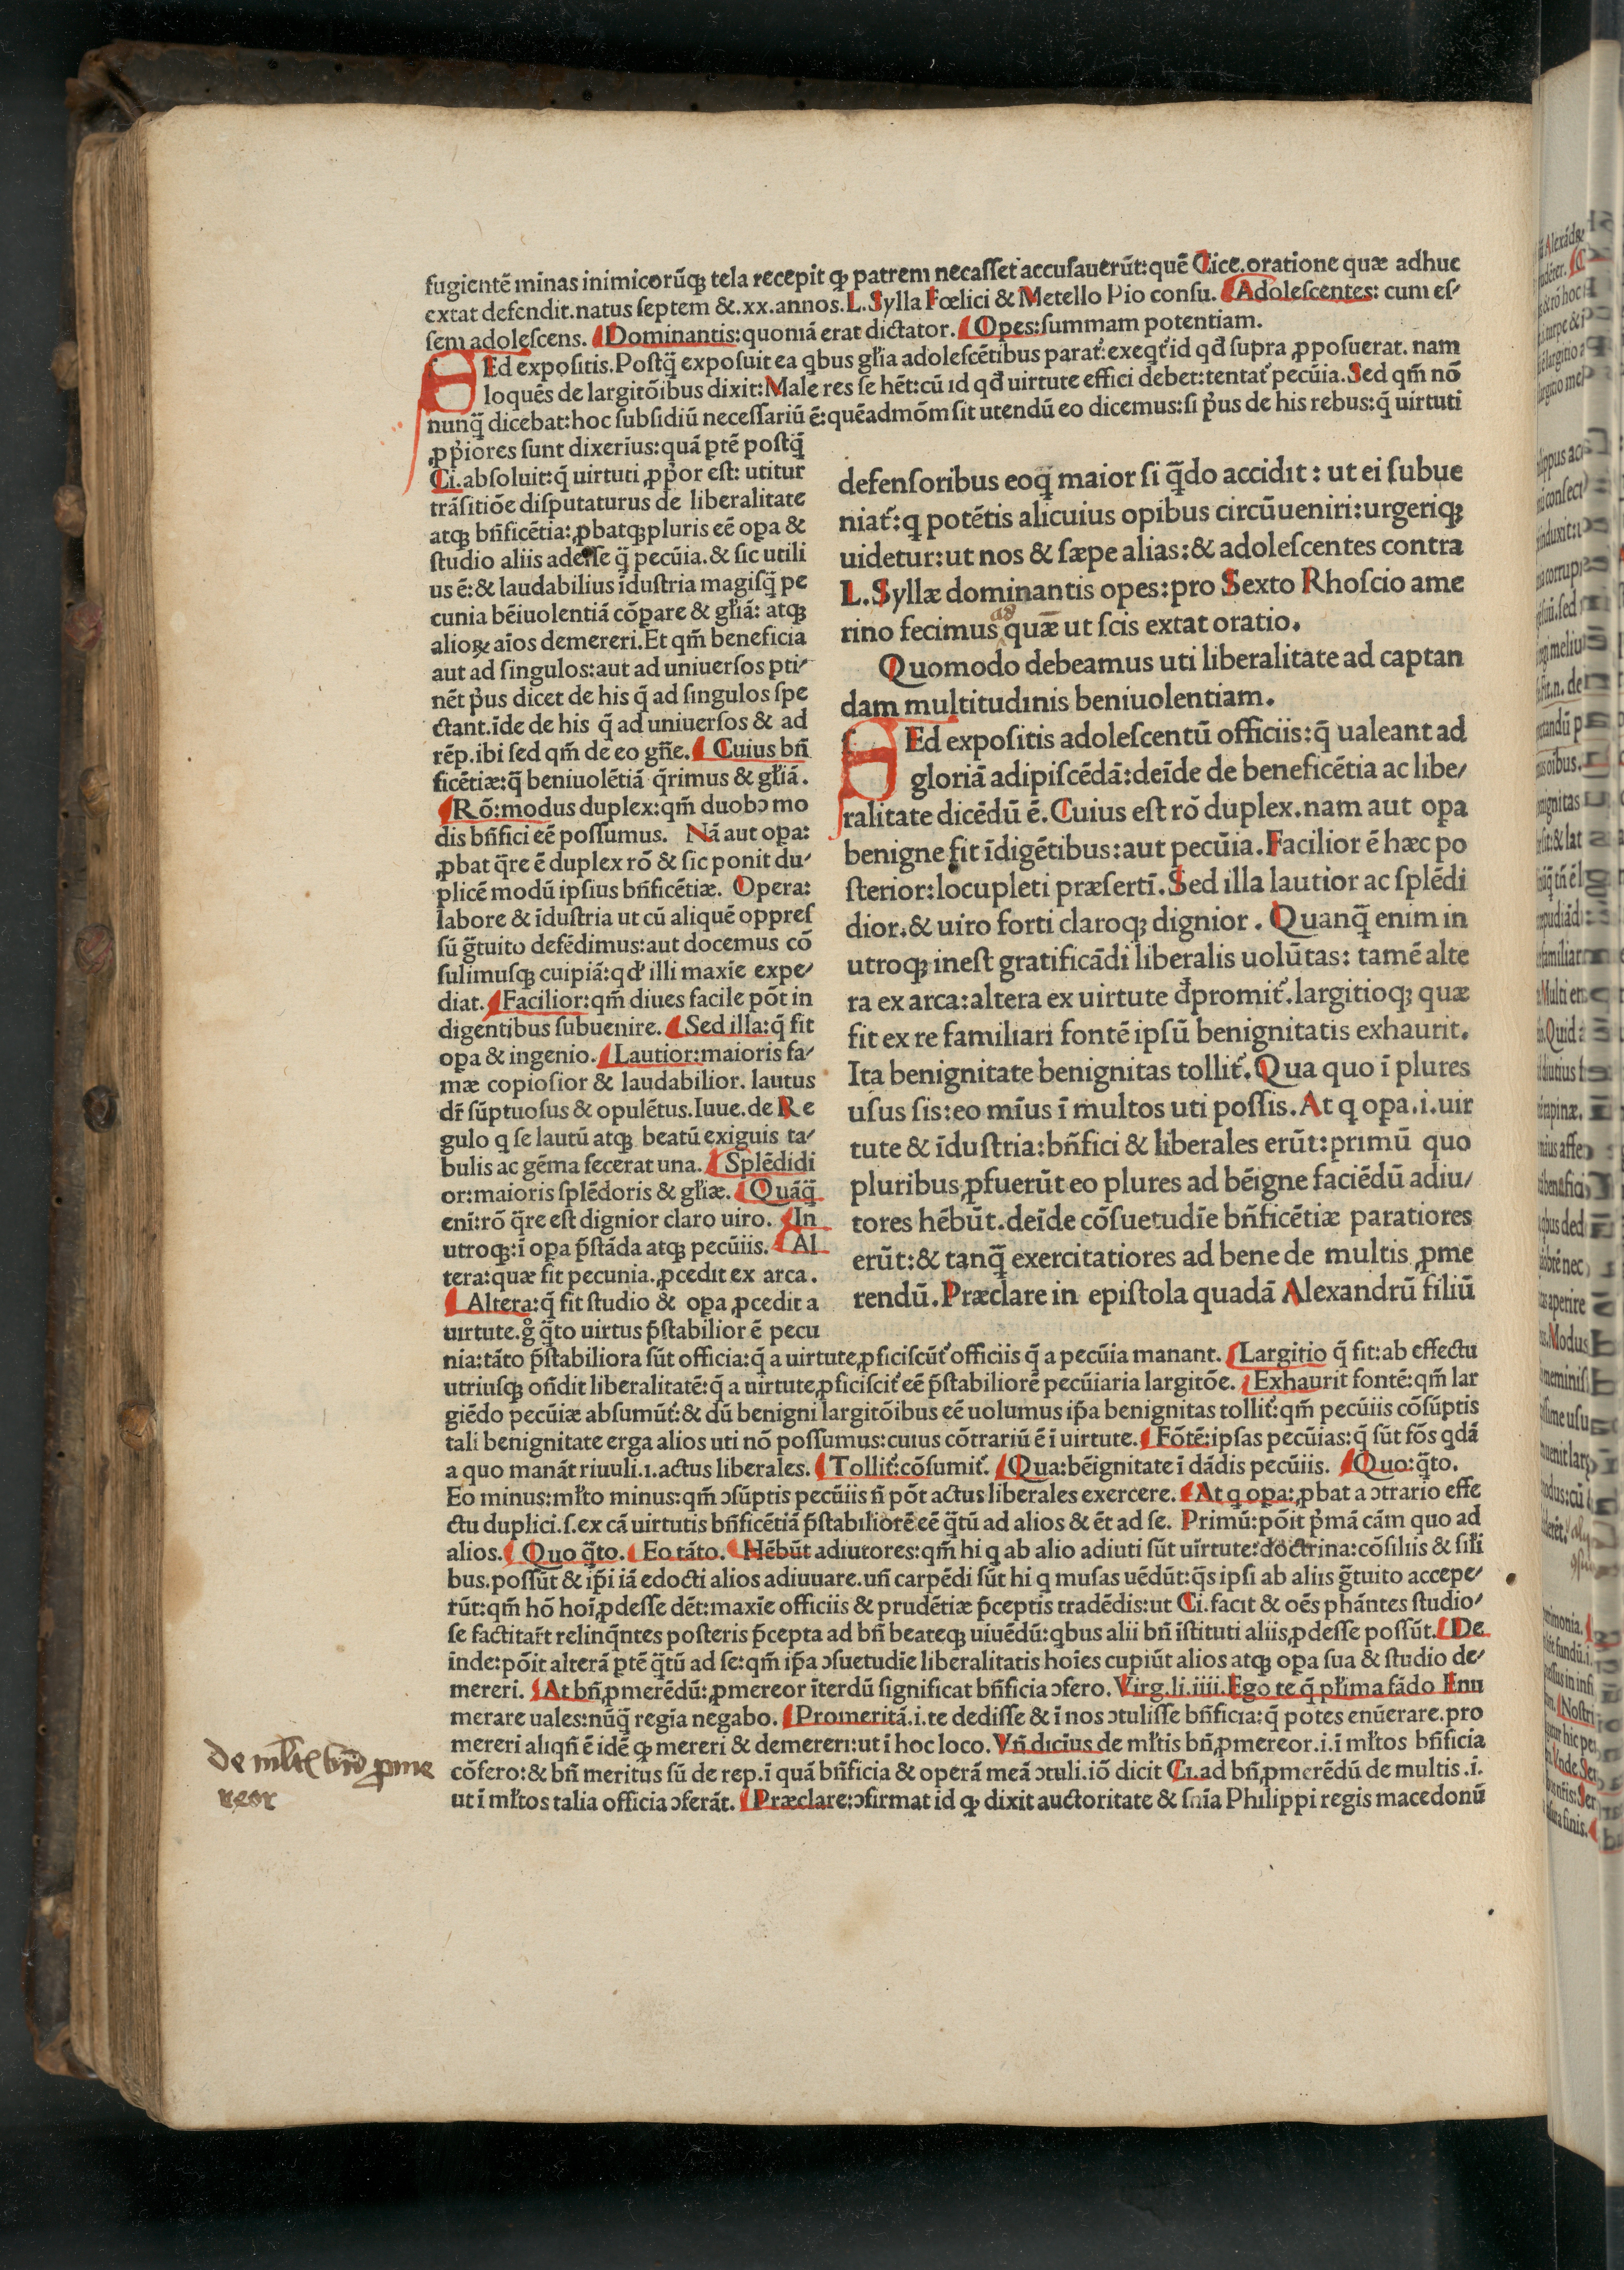 fugientē minas inimicorūq; tela recepit ꝙ patrem necaſſet accuſauerūt: quē Cice. oratione quæ adhuc
extat defendit. natus ſeptem &. xx. annos. L. Sylla Fœlici & Metello Pio conſu. ¶ Adoleſcentes: cum eſ-
ſem adoleſcens. ¶ Dominantis: quoniā erat dictator. ¶ Opes: ſummam potentiam.
SEd expoſitis. Poſtq̄ expoſuit ea qbus gl̄ia adoleſcētibus parat᷑: exeqt᷑ id qd̄ ſupra ꝓpoſuerat. nam
loquēs de largitōibus dixit: Male res ſe hēt: cū id qd̄ uirtute effici debet: tentat᷑ pecūia. Sed qm̄ nō
nunq̄ dicebat: hoc ſubſidiū neceſſariū ē: quēadmōm ſit utendū eo dicemus: ſi p̄us de his rebus: q̄ uirtuti
ꝓp̄iores ſunt dixerius: quā ꝑtē poſtq̄
Ci. abſoluit: q̄ uirtuti ꝓp̄or eſt: utitur
trāſitiōe diſputaturus de liberalitate
atq; bn̄ficētia: ꝓbatq; pluris eē oꝑa &
ſtudio aliis adeſſe q̄ pecūia. & ſic utili
us ē: & laudabilius īduſtria magiſq̄ pe
cunia bēiuolentiā cōꝑare & gl̄iā: atq;
alioꝝ aīos demereri. Et qm̄ beneficia
aut ad ſingulos: aut ad uniuerſos ꝑti-
nēt p̄us dicet de his q̄ ad ſingulos ſpe
ctant. īde de his q̄ ad uniuerſos & ad
rēp. ibi ſed qm̄ de eo gn̄e. ¶ Cuius bn̄
ficētiæ: q̄ beniuolētiā q̄rimus & gl̄iā.
¶ Rō: modus duplex: qm̄ duobꝰ mo
dis bn̄fici eē poſſumus. Nā aut oꝑa:
ꝓbat q̄re ē duplex rō & ſic ponit du-
plicē modū ipſius bn̄ficētiæ. Opera:
labore & īduſtria ut cū aliquē oppreſ
ſū ḡtuito defēdimus: aut docemus cō
ſulimuſq; cuipiā: qd̄ illi maxīe expe-
diat. ¶ Facilior: qm̄ diues facile pōt in
digentibus ſubuenire. ¶ Sed illa: q̄ fit
oꝑa & ingenio. ¶ Lautior: maioris fa-
mæ copioſior & laudabilior. lautus
dr̄ ſūptuoſus & opulētus. Iuue. de Re
gulo q ſe lautū atq; beatū exiguis ta-
bulis ac gēma fecerat una. ¶ Splēdidi
or: maioris ſplēdoris & gl̄iæ. ¶ Quāq̄
eni: rō q̄re eſt dignior claro uiro. ¶ In
utroq;: ī oꝑa p̄ſtāda atq; pecūiis. ¶ Al
tera: quæ fit pecunia. ꝓcedit ex arca.
¶ Altera: q̄ fit ſtudio & oꝑa ꝓcedit a
uirtute. g̊ q̄to uirtus p̄ſtabilior ē pecu
defenſoribus eoq; maior ſi q̄do accidit: ut ei ſubue
niat᷑: q potētis alicuius opibus circūueniri: urgeriq;
uidetur: ut nos & ſæpe alias: & adoleſcentes contra
L. Syllæ dominantis opes: pro Sexto Rhoſcio ame
rino fecimus quæ ut ſcis extat oratio.
Quomodo debeamus uti liberalitate ad captan
dam multitudinis beniuolentiam.
SEd expoſitis adoleſcentū officiis: q̄ ualeant ad
gloriā adipiſcēdā: deīde de beneficētia ac libe-
ralitate dicēdū ē. Cuius eſt rō duplex. nam aut oꝑa
benigne fit īdigētibus: aut pecūia. Facilior ē hæc po
ſterior: locupleti præſertī. Sed illa lautior ac ſplēdi
dior. & uiro forti claroq; dignior. Quanq̄ enim in
utroq; ineſt gratificādi liberalis uolūtas: tamē alte
ra ex arca: altera ex uirtute đpromit᷑. largitioq; quæ
fit ex re familiari fontē ipſū benignitatis exhaurit.
Ita benignitate benignitas tollit᷑. Qua quo ī plures
uſus ſis: eo mīus ī multos uti poſſis. At q oꝑa. i. uir
tute & īduſtria: bn̄fici & liberales erūt: primū quo
pluribus ꝓfuerūt eo plures ad bēigne faciēdū adiu-
tores hēbūt. deīde cōſuetudīe bn̄ficētiæ paratiores
erūt: & tanq̄ exercitatiores ad bene de multis ꝓme
rendū. Præclare in epiſtola quadā Alexandrū filiū
nia: tāto p̄ſtabiliora ſūt officia: q̄ a uirtute ꝓficiſcūt᷑ officiis q̄ a pecūia manant. ¶ Largitio q̄ fit: ab effectu
utriuſq; on̄dit liberalitatē: q̄ a uirtute ꝓficiſcit᷑ eē p̄ſtabiliorē pecūiaria largitōe. ¶ Exhaurit fontē: qm̄ lar
giēdo pecūiæ abſumūt᷑: & dū benigni largitōibus eē uolumus ip̄a benignitas tollit᷑: qm̄ pecūiis cōſūptis
tali benignitate erga alios uti nō poſſumus: cuius cōtrariū ē ī uirtute. ¶ Fōtē: ipſas pecūias: q̄ ſūt fōs qdā
a quo manāt riuuli. i. actus liberales. ¶ Tollit᷑: cōſumit᷑. ¶ Qua: bēignitate ī dādis pecūiis. ¶ Quo: q̄to.
Eo minus: ml̄to minus: qm̄ ɔſūptis pecūiis n̄ pōt actus liberales exercere. ¶ At q oꝑa: ꝓbat a ɔtrario effe
ctu duplici. ſ. ex cā uirtutis bn̄ficētiā p̄ſtabiliorē eē q̄tū ad alios & ēt ad ſe. Primū: pōit p̄mā cām quo ad
alios. ¶ Quo q̄to. ¶ Eo tāto. ¶ Hēbūt adiutores: qm̄ hi q ab alio adiuti ſūt uirtute: doctrina: cōſiliis & ſil̄i
bus. poſſūt & ip̄i iā edocti alios adiuuare. un̄ carpēdi ſūt hi q muſas uēdūt: q̄s ipſi ab aliis ḡtuito accepe-
rūt: qm̄ hō hoī ꝓdeſſe dēt: maxīe officiis & prudētiæ p̄ceptis tradēdis: ut Ci. facit & oēs phāntes ſtudio-
ſe factitar̄t relinq̄ntes poſteris p̄cepta ad bn̄ beateq; uiuēdū: qbus alii bn̄ īſtituti aliis ꝓdeſſe poſſūt. ¶ De
inde: pōit alterā ꝑtē q̄tū ad ſe: qm̄ ip̄a ɔſuetudīe liberalitatis hoīes cupiūt alios atq; oꝑa ſua & ſtudio de-
mereri. ¶ At bn̄ ꝓmerēdū: ꝓmereor īterdū ſignificat bn̄ficia ɔfero. Virg. li. iiii. Ego te q̄ pl̄ima fādo Enu
merare uales: nūq̄ regīa negabo. ¶ Promeritā. i. te dediſſe & ī nos ɔtuliſſe bn̄ficia: q̄ potes enūerare. pro
mereri aliqn̄ ē idē ꝙ mereri & demereri: ut ī hoc loco. Vn̄ dicīus de ml̄tis bn̄ ꝓmereor. i. ī ml̄tos bn̄ficia
cōfero: & bn̄ meritus ſū de rep. ī quā bn̄ficia & operā meā ɔtuli. iō dicit Ci. ad bn̄ ꝓmerēdū de multis. i.
ut ī ml̄tos talia officia ɔferāt. ¶ Præclare: ɔfirmat id ꝙ dixit auctoritate & ſn̄ia Philippi regis macedonū
de ml̄tis bn̄ ꝓme
reor